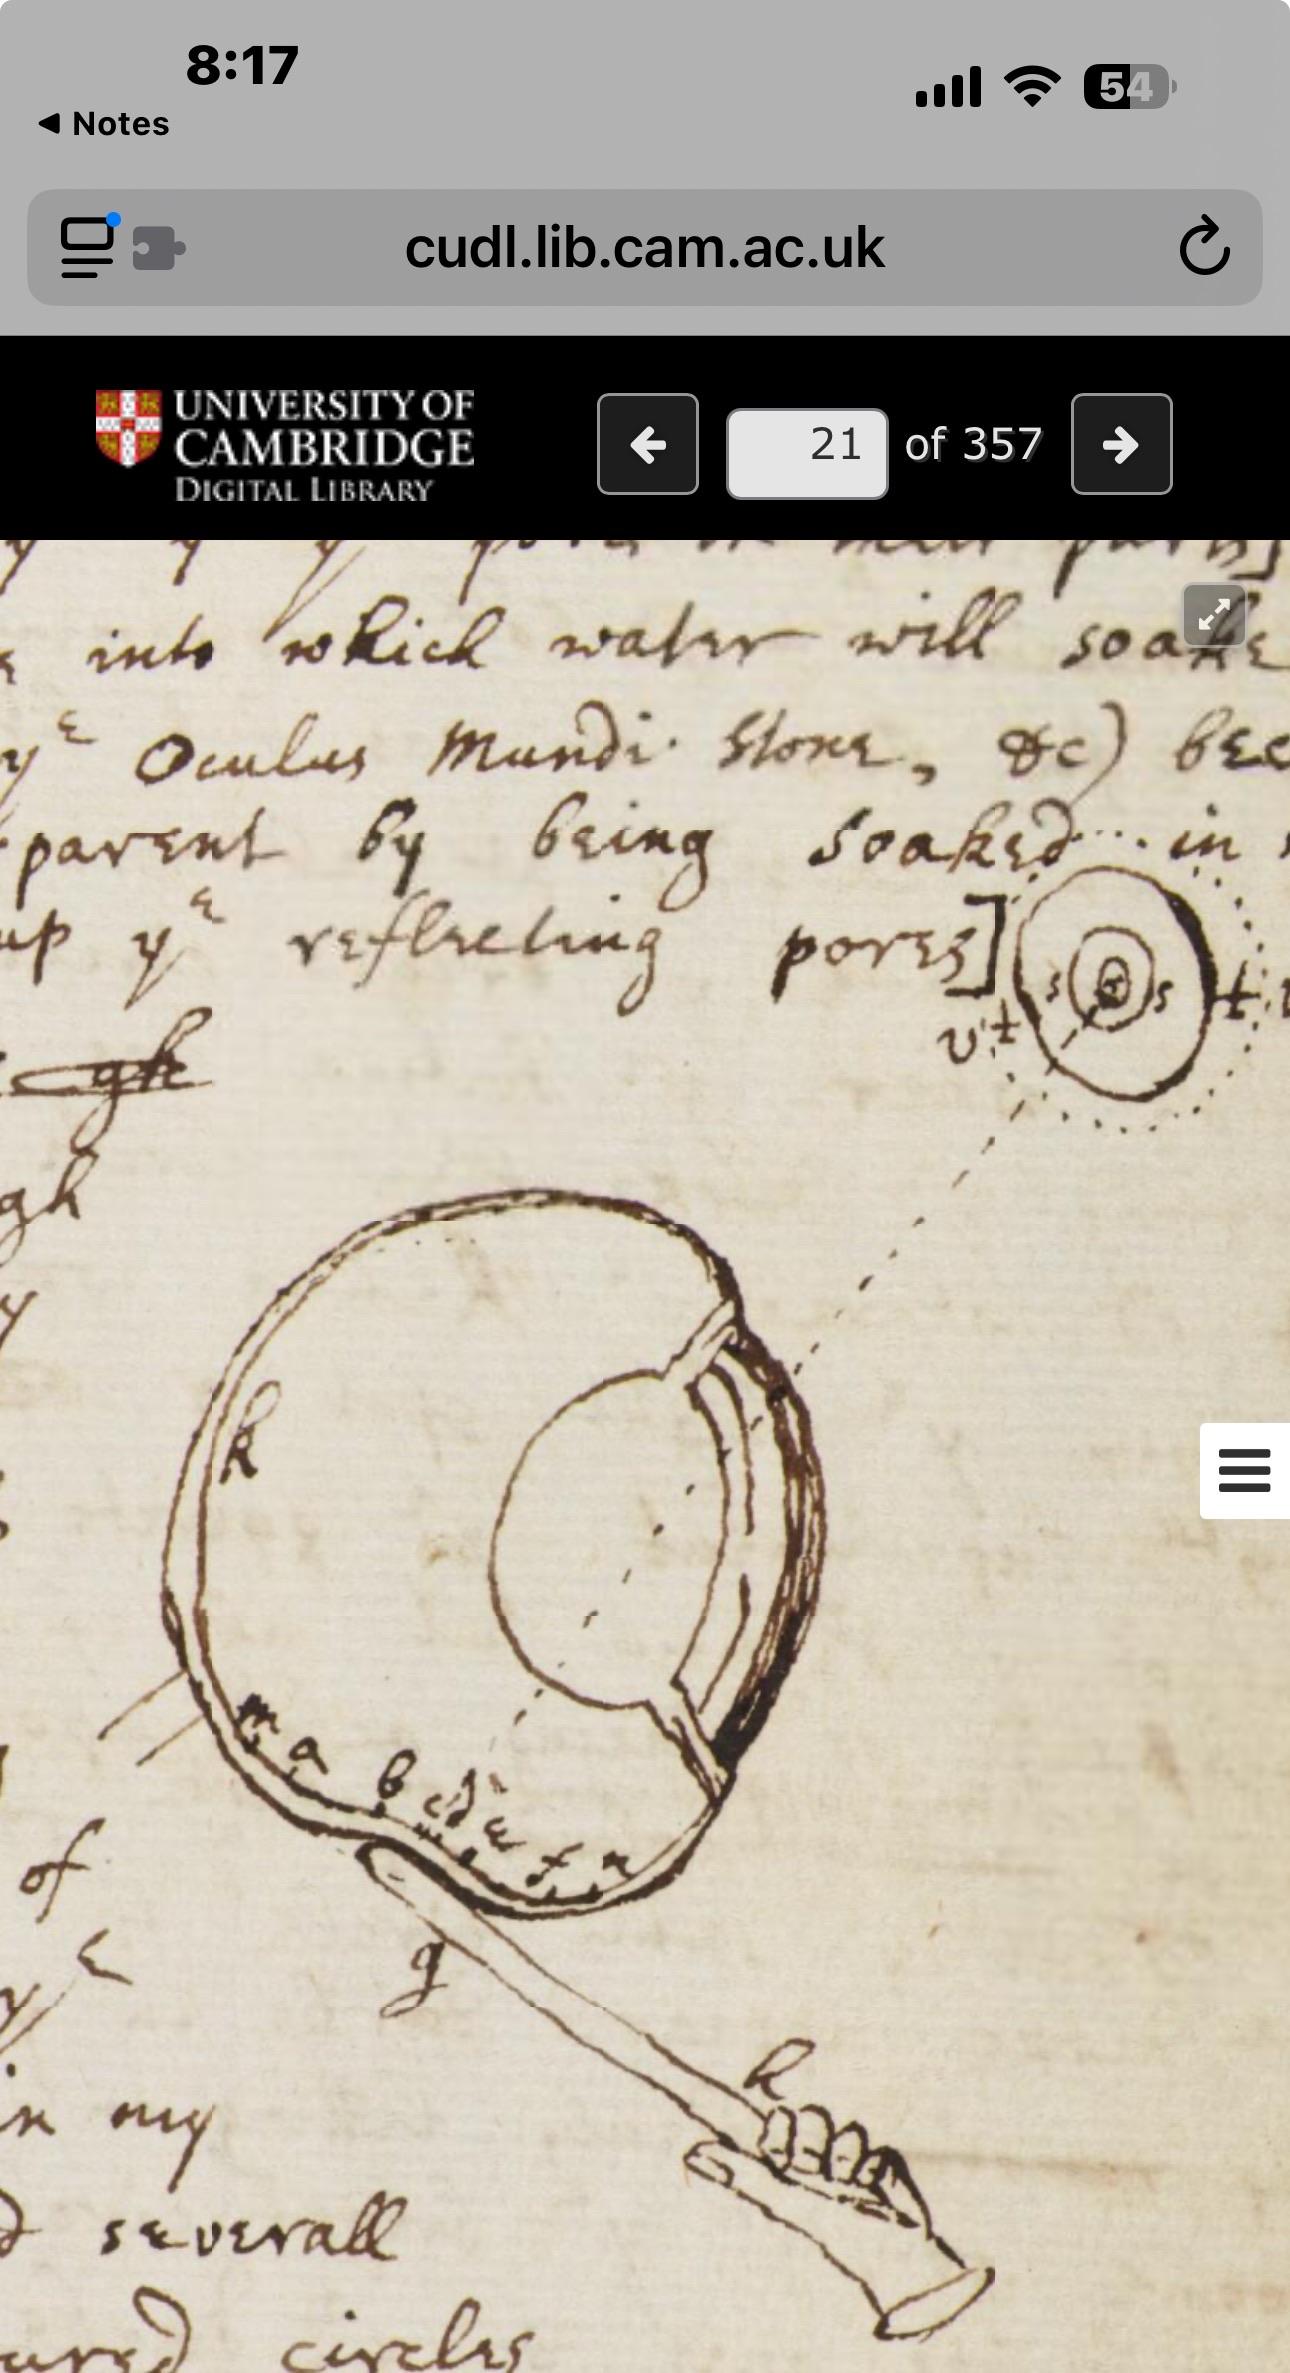 8:17
54
◀ Notes
cudl.lib.cam.ac.uk
UNIVERSITY OF
CAMBRIDGE
DIGITAL LIBRARY
21 of 357
into which water will soake
yᵉ Oculus Mundi Stone, &c) bec
parent by being soaked in
up yᵉ reflecting pores]
s s t
v t
gh
gh
y
k
m a b c d e f n
of
g
yᵉ
h
in my
severall
ured circles